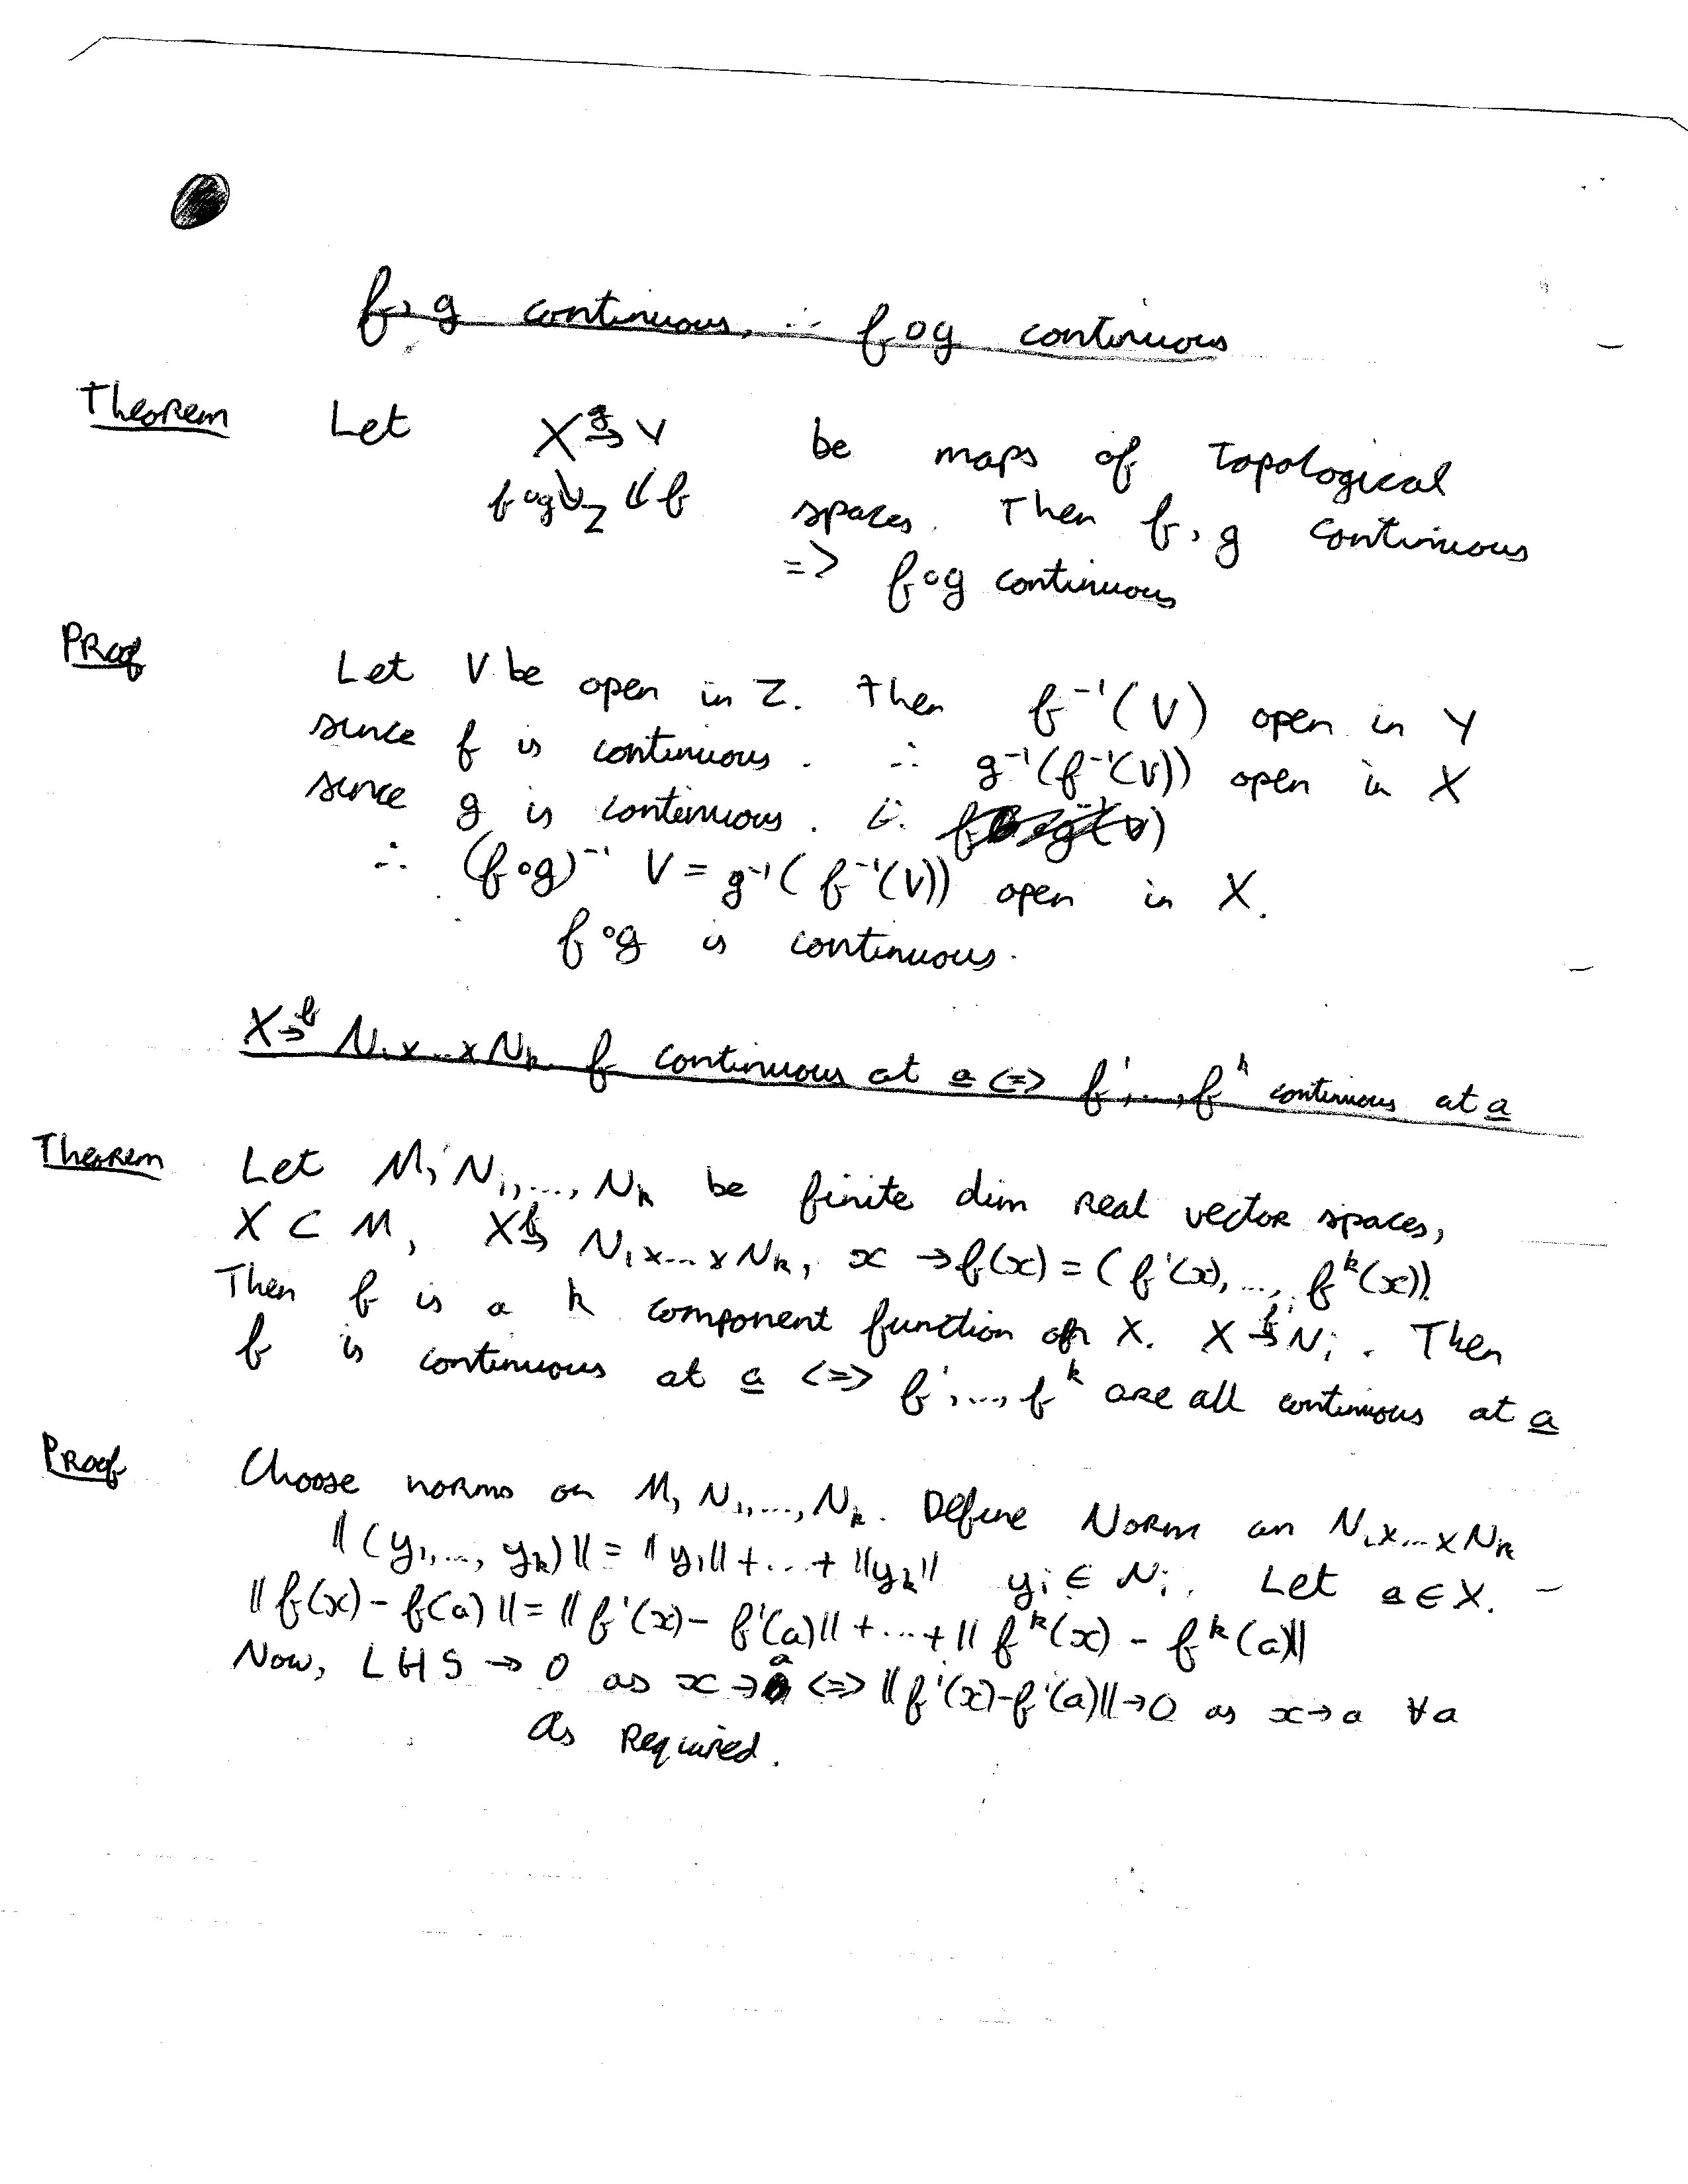 f, g continuous, ∴ f∘g continuous
Theorem Let X →g Y be maps of topological
f∘g ↘ Z ↙ f spaces. Then f, g continuous
=> f∘g continuous
Proof
Let V be open in Z. Then f⁻¹(V) open in Y
since f is continuous. ∴ g⁻¹(f⁻¹(V)) open in X
since g is continuous. ∴
∴ (f∘g)⁻¹ V = g⁻¹(f⁻¹(V)) open in X.
f∘g is continuous.
X →f N₁x...xNₖ f continuous at a <=> f¹,...,fᵏ continuous at a
Theorem Let M, N₁,..., Nₖ be finite dim real vector spaces,
X ⊂ M, X →f N₁x...xNₖ, x → f(x) = (f¹(x),..., fᵏ(x)).
Then f is a k component function on X. X →fⁱ Nᵢ. Then
f is continuous at a <=> f¹,...,fᵏ are all continuous at a
Proof Choose norms on M, N₁,..., Nₖ. Define Norm on N₁x...xNₖ
‖(y₁,..., yₖ)‖ = ‖y₁‖ + ... + ‖yₖ‖ yᵢ ∈ Nᵢ. Let a ∈ X.
‖f(x) - f(a)‖ = ‖f¹(x) - f¹(a)‖ + ... + ‖fᵏ(x) - fᵏ(a)‖
Now, LHS → 0 as x → a <=> ‖f¹(x) - f¹(a)‖ → 0 as x → a ∀a
As Required.